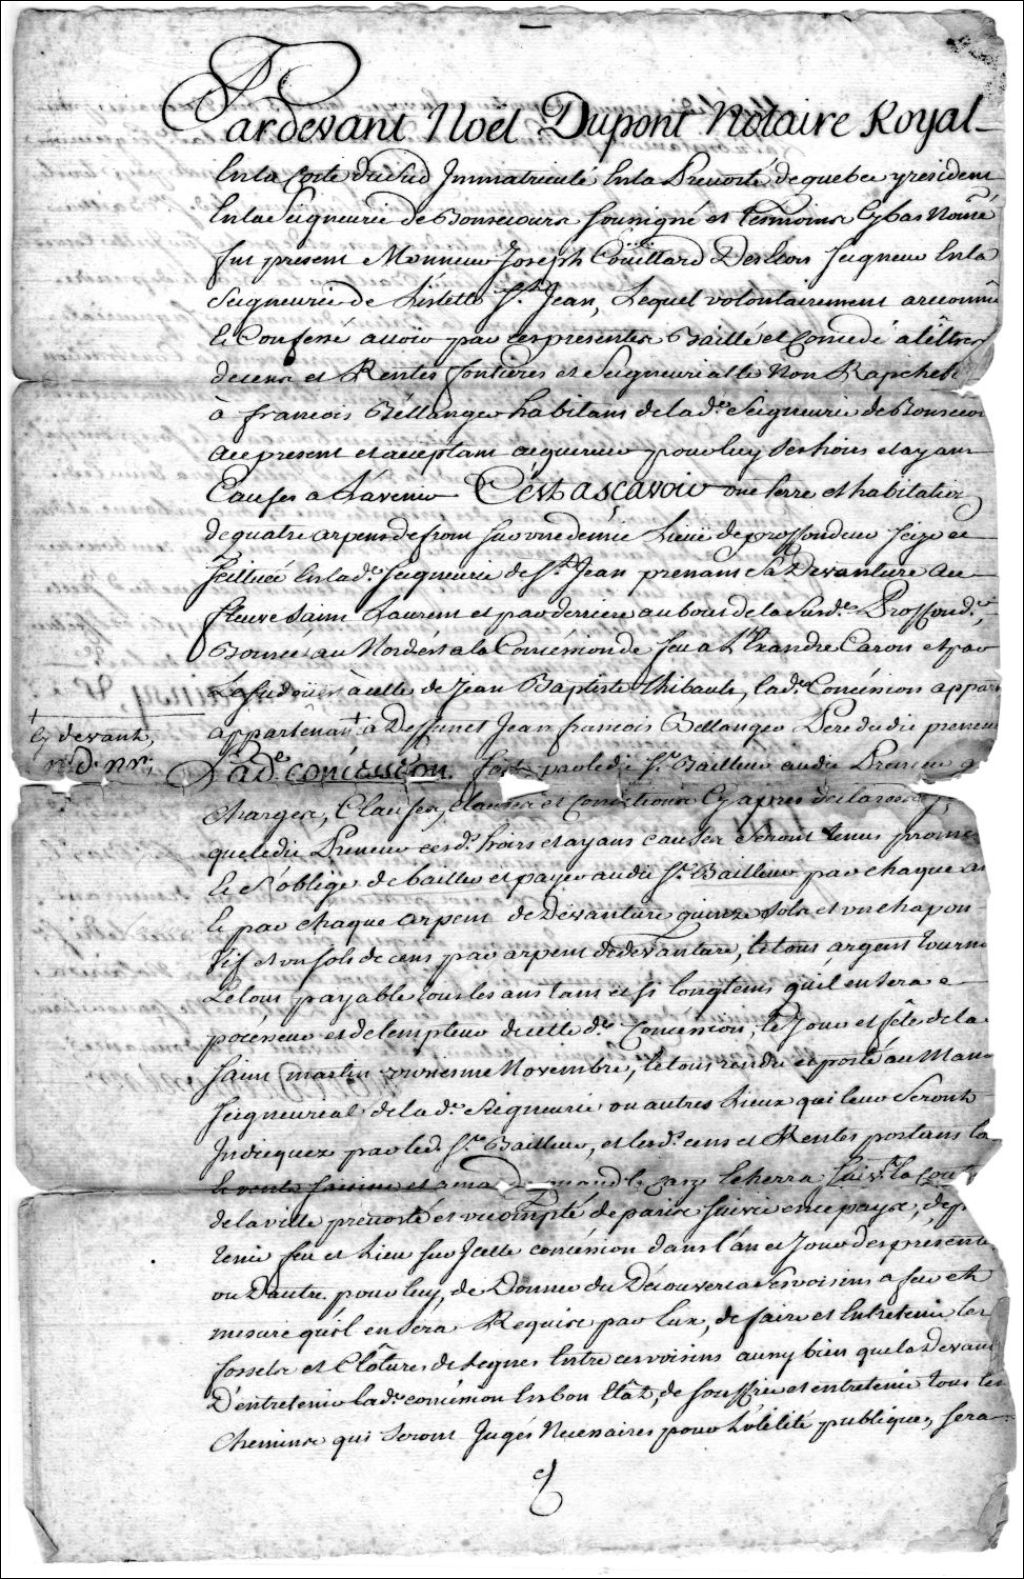 Pardevant Noël Dupont Notaire Royal
En la Coste du Sud Immatriculé En la Prevosté de quebec y resident
En la Seigneurie de Bonsecours soussigné et temoins Cy bas Nommé
fut present Monsieur Joseph Coüillard Desilois Seigneur En la
Seigneurie de Lislette St. Jean, Lequel volontairement a reconnu
Et Confessé avoir par ces presentes Baillé et Concedé a têltre
de cens et Rentes fontieres et Seigneurialle Non Rapchet
à francois Bellanger habitant de la de. Seigneurie de Bonsecou
ace present et acceptant acquereur pour luy Ses hoirs et ayans
Causes a L'avenir C'est ascavoir une terre et habitation
de quatre arpens de front sur une demie Lieüe de proffondeur Seize et
scituée En lade. Seigneurie de St. Jean prenant Sa Devanture au
fleuve Saint Laurent et par derriere au bout de la Susde. Proffondr.,
Bornée au Nordést a la Concéssion de feu a L'Exandre Caron et par
Le Sudoüest à celle de Jean Baptiste Thibault, lade. Concéssion appar
appartenant + à Deffunct Jean francois Bellanger Pere dudit preneur
+
Cy devant,
n. d. nn.
Lade. concession. faite par ledit Sr. Bailleur audit Preneur
charges, Clauses, et Conditions Cy apres declarées
que ledit Preneur ces d. hoirs et ayans causes Seront tenus promet
Et S'oblige de bailler et payer audit Sr. Bailleur par chaque an
Et par chaque arpent de Devanture quinze Sols et un chapon
vif et un sols de cens par arpent de devanture, le tout argent tourn
Le tout payable tous les ans tant et si longtems qu'il en sera
pocésseur et detempteur d'icelle de. Concéssion, le Jour et fête de la
Saint martin onziesme Novembre, le tout rendu et porté au Man
Seigneureal de lade. Seigneurie ou autres Lieux qui leur Seront
Indiquez par led. Sr. Bailleur, et lesd. cens et Rentes portans lo
Et vente saisine et amande quand le cas Echerra Suivt. la Cout
de la ville prevosté et vicompté de paris Suivie en ce pays; de
tenir feu et Lieu sur Icelle concéssion dans l'an et Jour des presente
ou D'autre pour luy, de Donner du Découvert a Ses voisins a feur et
mesure qu'il en sera Requis par Eux, de faire et Entretenir les
fossets et Clôtures de Lignes Entre ces voisins aussy bien que la Devan
D'entretenir lade. concéssion En bon Etât, de souffrir et entretenir tous les
Chemins qui seront Jugés Necessaires pour L'ûtilité publique, sera